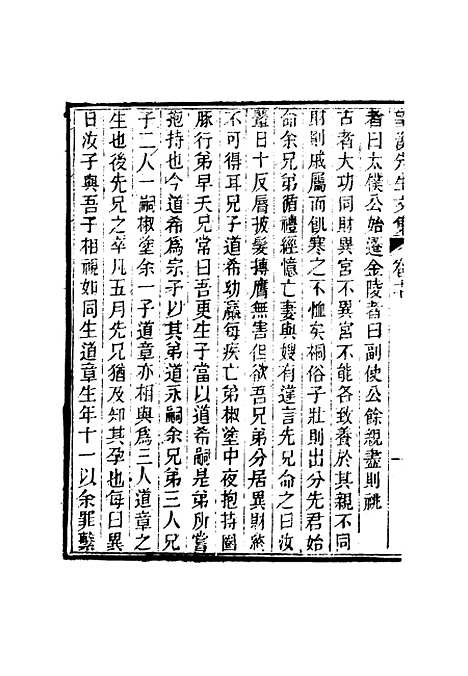 望溪先生文集 卷十七
者曰太僕公始遷金陵者曰副使公餘親盡則祧
古者大功同財異宮不異宮不能各致養於其親不同
財則戚屬而飢寒之不恤矣桐俗子壯則出分先君始
命余兄弟循禮經憶亡妻與嫂有違言先兄命之曰汝
輩日十反唇披髮搏膺無害但欲吾兄弟分居異財終
不可得耳兄子道希幼羸每疾亡弟椒塗中夜抱持圊
腧行弟早夭兄常曰吾更生子當以道希嗣是弟所嘗
抱持也今道希為宗子以其弟道永嗣余兄弟三人兄
子二人一嗣椒塗余一子道章亦相與為三人道章之
生也後先兄之卒凡五月先兄猶及知其孕也每曰異
日汝子與吾子相視如同生道章生年十一以余罪繫